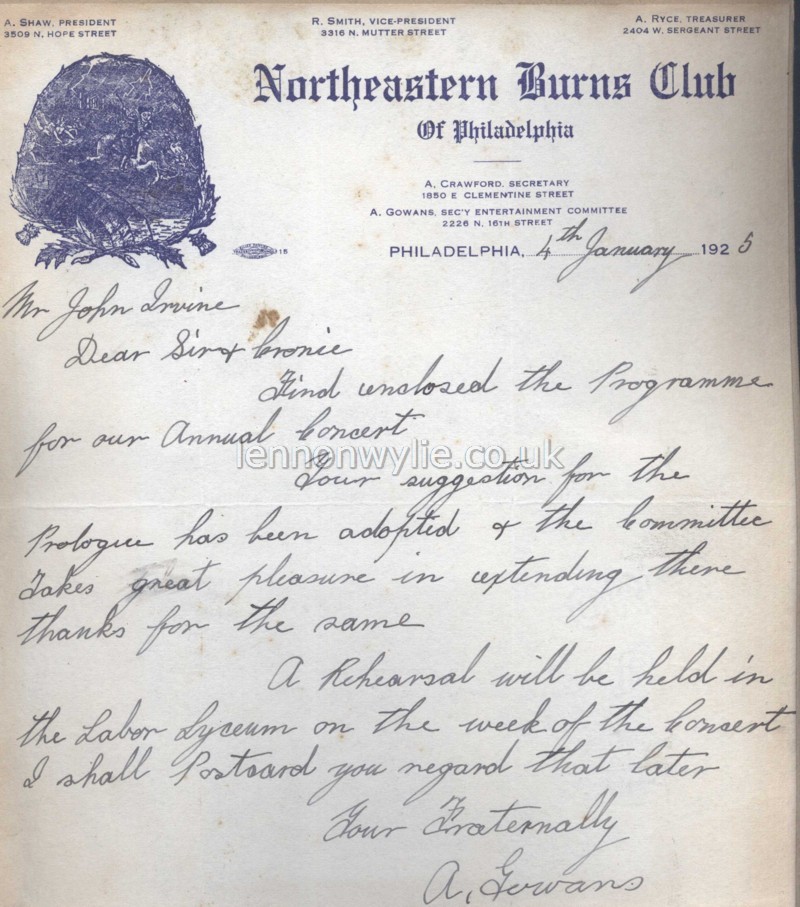 A. SHAW, PRESIDENT
3509 N. HOPE STREET
R. SMITH, VICE-PRESIDENT
3316 N. MUTTER STREET
A. RYCE, TREASURER
2404 W. SERGEANT STREET
Northeastern Burns Club
Of Philadelphia
A. CRAWFORD, SECRETARY
1850 E CLEMENTINE STREET
A. GOWANS, SEC'Y ENTERTAINMENT COMMITTEE
2226 N. 16TH STREET
15
PHILADELPHIA, 4th January 1925
Mr John Irvine
Dear Sir & Cronie
Find enclosed the Programme
for our Annual Concert
lennonwylie.co.uk
Your suggestion for the
Prologue has been adopted & the Committee
Takes great pleasure in extending there
thanks for the same
A Rehearsal will be held in
the Labor Lyceum on the week of the Concert
I shall Postcard you regard that later
Your Fraternally
A. Gowans